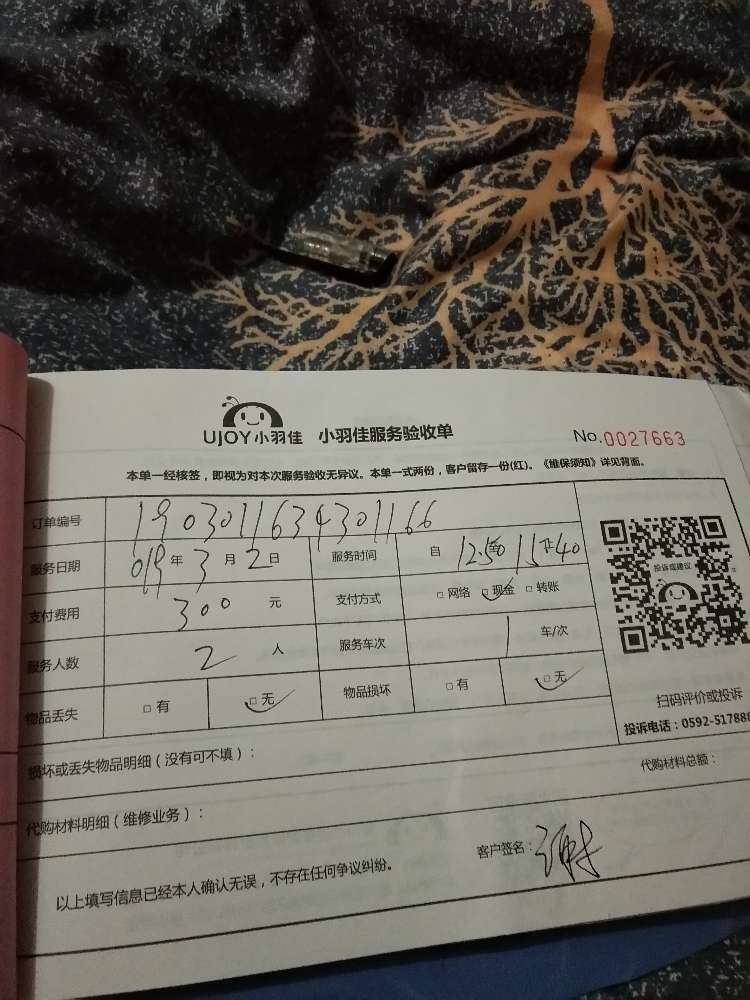 UJOY小羽佳 小羽佳服务验收单 No.0027663
本单一经核签，即视为对本次服务验收无异议。本单一式两份，客户留存一份(红)。《维保须知》详见背面。
订单编号 1903011634301166
服务日期 019年3月2日 服务时间 自 12:50至15:40
支付费用 300元 支付方式 □网络 □现金 □转账
服务人数 2人 服务车次 1车/次
物品丢失 □有 □无 物品损坏 □有 □无
投诉或建议
扫码评价或投诉
投诉电话：0592-517888
损坏或丢失物品明细（没有可不填）：
代购材料明细（维修业务）： 代购材料总额：
以上填写信息已经本人确认无误，不存在任何争议纠纷。 客户签名：